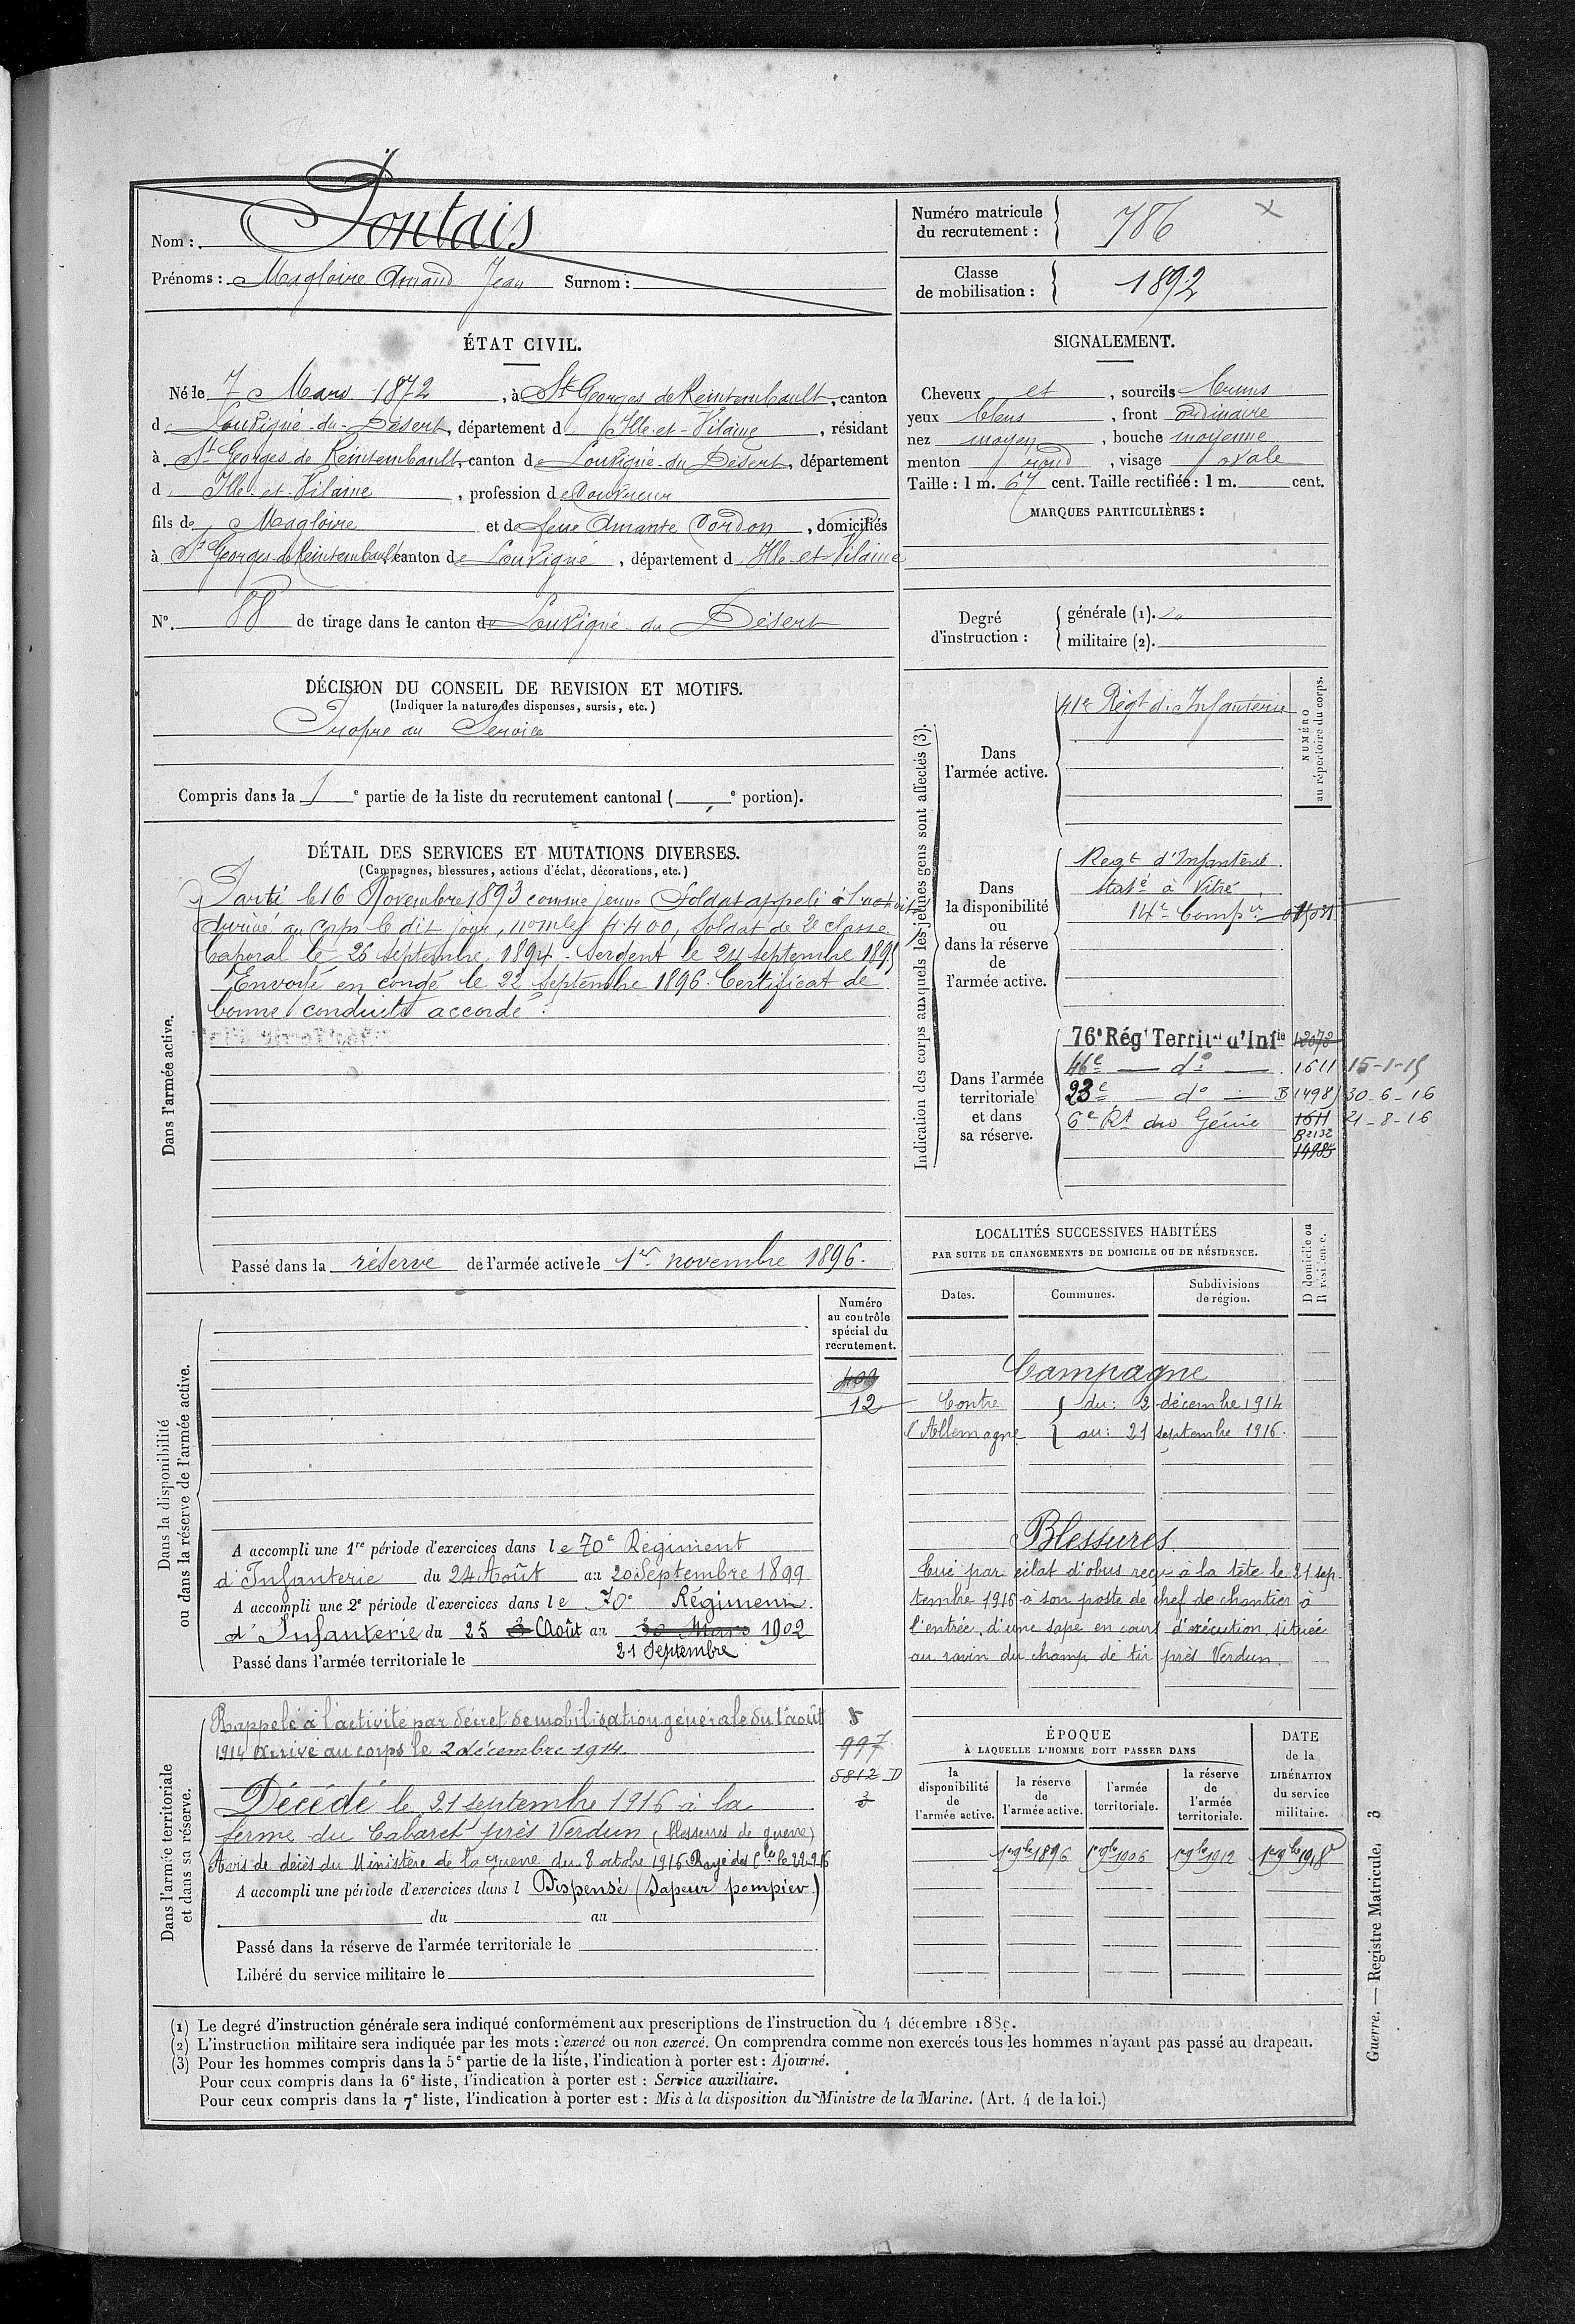 Nom : Pontais
Prénoms : Magloire Amand Jean Surnom :
Numéro matricule du recrutement : 786
Classe de mobilisation : 1892
ÉTAT CIVIL.
Né le 7 Mars 1872, à St Georges de Reintembault, canton
d Louvigné-du-Désert, département d Ille-et-Vilaine, résidant
à St Georges de Reintembault, canton de Louvigné-du-Désert, département
d Ille-et-Vilaine, profession de Couvreur
fils de Magloire et de feue Amante Cordon, domiciliés
à St Georges de Reintembault, canton de Louvigné, département d Ille-et-Vilaine
N°. 88 de tirage dans le canton de Louvigné du Désert
SIGNALEMENT.
Cheveux et, sourcils bruns
yeux bleus, front ordinaire
nez moyen, bouche moyenne
menton rond, visage ovale
Taille : 1 m. 67 cent. Taille rectifiée : 1 m. cent.
MARQUES PARTICULIÈRES :
Degré d'instruction :
générale (1).
militaire (2).
DÉCISION DU CONSEIL DE REVISION ET MOTIFS.
(Indiquer la nature des dispenses, sursis, etc.)
Propre au Service
Compris dans la 1e partie de la liste du recrutement cantonal ( e portion).
DÉTAIL DES SERVICES ET MUTATIONS DIVERSES.
(Campagnes, blessures, actions d'éclat, décorations, etc.)
Dans l'armée active.
Parti le 16 Novembre 1893 comme jeune Soldat appelé à l'activité
Arrivé au corps le dit jour, no mle 4400, Soldat de 2e classe
Caporal le 26 septembre 1894. Sergent le 24 septembre 1895
Envoyé en congé le 22 septembre 1896. Certificat de
bonne conduite accordé.
Passé dans la réserve de l'armée active le 1er novembre 1896.
Indication des corps auxquels les jeunes gens sont affectés (3).
NUMÉRO au répertoire du corps.
Dans l'armée active.
41e Régt d'Infanterie
Dans la disponibilité ou dans la réserve de l'armée active.
Regt d'Infanterie
Staté à Vitré
14e Compie
Dans l'armée territoriale et dans sa réserve.
76e Régt Territal d'Infie 12078
46e — do — 1611 15-1-15
23e — do — B 1498 30-6-16
6e Rt du Génie 1611 21-8-16
B2132
14985
LOCALITÉS SUCCESSIVES HABITÉES
PAR SUITE DE CHANGEMENTS DE DOMICILE OU DE RÉSIDENCE.
Dates. Communes. Subdivisions de région. D domicile ou R résidence.
Campagne
Contre du : 2 décembre 1914
l'Allemagne au : 21 septembre 1916.
Blessures.
Tué par éclat d'obus reçu à la tête le 21 sep-
tembre 1916 à son poste de chef de chantier à
l'entrée d'une sape en cours d'exécution située
au ravin du champ de tir près Verdun.
Dans la disponibilité ou dans la réserve de l'armée active.
Numéro au contrôle spécial du recrutement.
12
A accompli une 1re période d'exercices dans le 70e Régiment
d'Infanterie du 24 Août au 20 Septembre 1899
A accompli une 2e période d'exercices dans le 70e Régiment
d'Infanterie du 25 3 Août au 30 Mars 1902
21 Septembre
Passé dans l'armée territoriale le
Dans l'armée territoriale et dans sa réserve.
Rappelé à l'activité par décret de mobilisation générale du 1er août
1914 Arrivé au corps le 2 décembre 1914.
997
5812 D
3
Décédé le 21 septembre 1916 à la
ferme du Cabaret près Verdun (blessures de guerre)
Avis de décès du Ministère de la guerre du 8 octobre 1916 Rayé des Cles le 22-9-16
A accompli une période d'exercices dans l Dispensé (Sapeur pompier)
du au
Passé dans la réserve de l'armée territoriale le
Libéré du service militaire le
ÉPOQUE
À LAQUELLE L'HOMME DOIT PASSER DANS
la disponibilité de l'armée active. la réserve de l'armée active. l'armée territoriale. la réserve de l'armée territoriale.
DATE de la LIBÉRATION du service militaire.
1er 9bre 1896 1er 9bre 1906 1er 9bre 1912 1er 9bre 1918
(1) Le degré d'instruction générale sera indiqué conformément aux prescriptions de l'instruction du 4 décembre 1889.
(2) L'instruction militaire sera indiquée par les mots : exercé ou non exercé. On comprendra comme non exercés tous les hommes n'ayant pas passé au drapeau.
(3) Pour les hommes compris dans la 5e partie de la liste, l'indication à porter est : Ajourné.
Pour ceux compris dans la 6e liste, l'indication à porter est : Service auxiliaire.
Pour ceux compris dans la 7e liste, l'indication à porter est : Mis à la disposition du Ministre de la Marine. (Art. 4 de la loi.)
Guerre. — Registre Matricule. 3